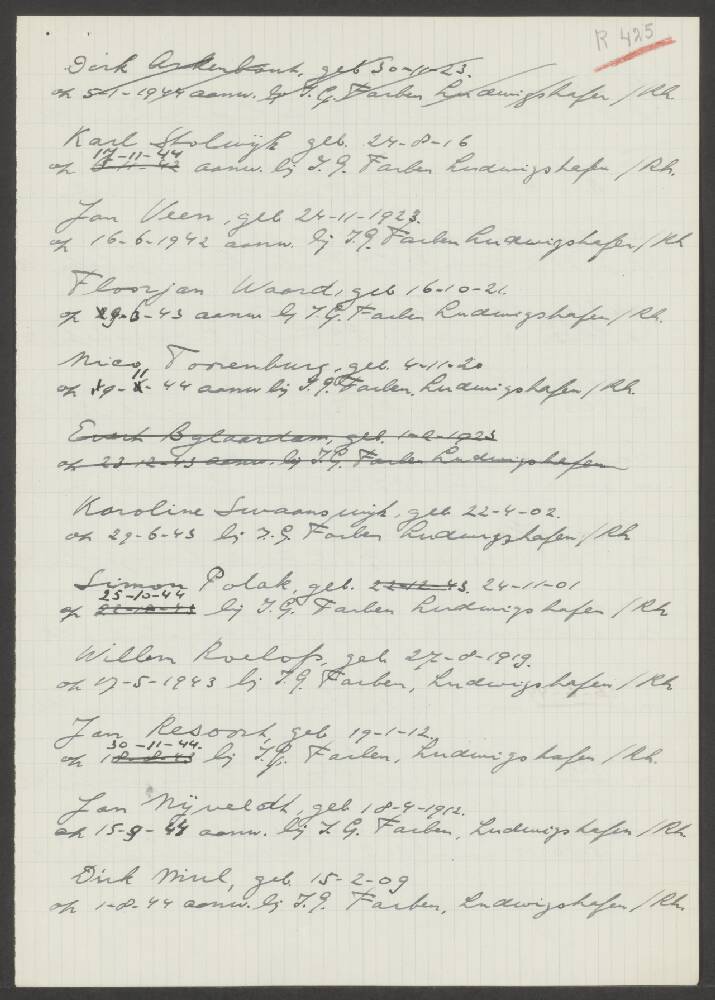 R 425
Dirk Ackerbout, geb 30-11-23.
op 5-1-1944 aanw. bij I.G. Farben Ludwigshafen / Rh
Karl Stolwijk geb. 24-8-16
17-11-44
op aanw. bij I.G. Farben Ludwigshafen / Rh.
Jan Veen, geb 24-11-1923.
op 16-6-1942 aanw. bij I.G. Farben Ludwigshafen / Rh
Floorjan Waard, geb 16-10-21.
op 29-6-43 aanw bij I.G. Farben Ludwigshafen / Rh.
Nico Toorenburg, geb. 4-11-20
11
op 19- - 44 aanw bij I.G. Farben, Ludwigshafen / Rh.
Evert Bylaardam, geb. 1-2-1923
op 23-12-43 aanw. bij I.G. Farben Ludwigshafen
Karoline Swaanswijk, geb 22-4-02.
op 29-6-43 bij I.G. Farben Ludwigshafen / Rh
Simon Polak, geb. 22-12-43. 24-11-01
25-10-44
op bij I.G. Farben Ludwigshafen / Rh
Willem Roelofs, geb 27-8-1919.
op 17-5-1943 bij I.G. Farben, Ludwigshafen / Rh
Jan Resoort, geb 19-1-12.
30-11-44.
op 18-8-43 bij I.G. Farben, Ludwigshafen / Rh.
Jan Nijveldt, geb 18-4-1912.
op 15-9-44 aanw. bij I.G. Farben, Ludwigshafen / Rh.
Dirk Mul, geb. 15-2-09
op 1-8-44 aanw. bij I.G. Farben, Ludwigshafen / Rh.